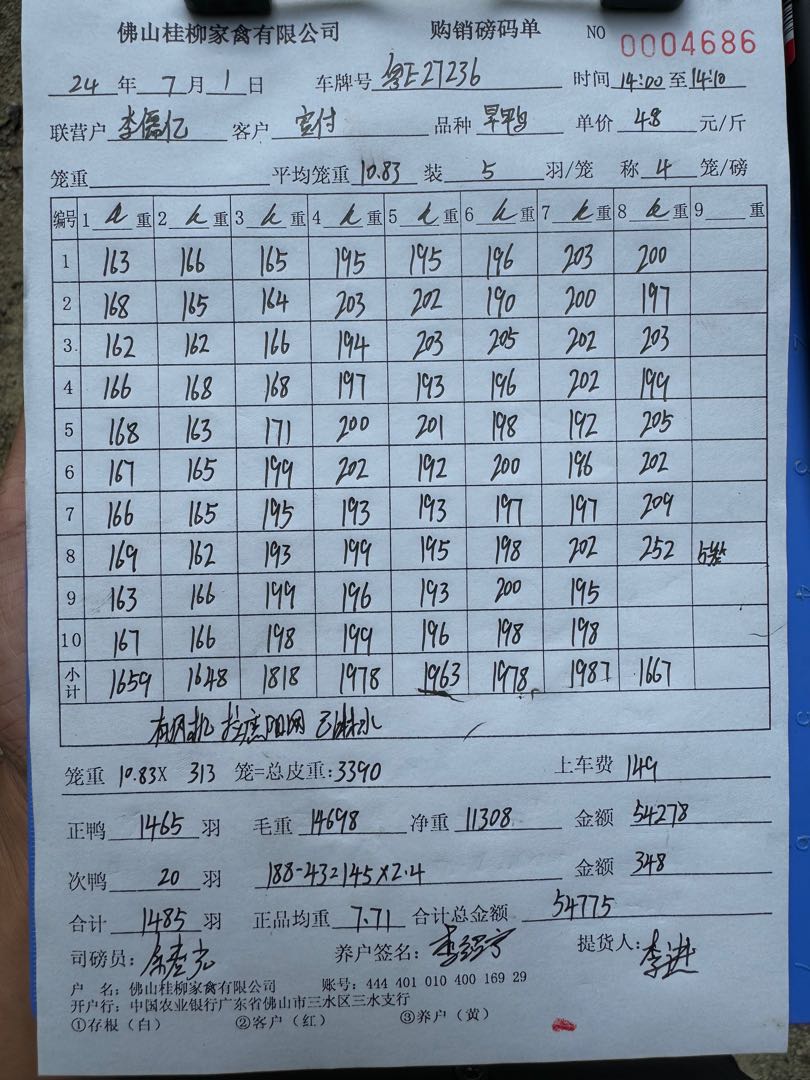 佛山桂柳家禽有限公司 购销磅码单 NO 0004686
24 年 7 月 1 日 车牌号 粤E27236 时间 14:00 至 14:10
联营户 李儒亿 客户 宫付 品种 旱鸭 单价 4.8 元/斤
笼重 平均笼重 10.83 装 5 羽/笼 称 4 笼/磅
编号 1 重 2 重 3 重 4 重 5 重 6 重 7 重 8 重 9 重
1 163 166 165 195 195 196 203 200
2 168 165 164 203 202 190 200 197
3 162 162 166 194 203 205 202 203
4 166 168 168 197 193 196 202 199
5 168 163 171 200 201 198 192 205
6 167 165 199 202 192 200 196 202
7 166 165 195 193 193 197 197 209
8 169 162 193 199 195 198 202 252 5笼
9 163 166 199 196 193 200 195
10 167 166 198 199 196 198 198
小计 1659 1648 1818 1978 1963 1978 1987 1667
有风机 拉遮阳网 已淋水
笼重 10.83X 313 笼=总皮重:3390 上车费 149
正鸭 1465 羽 毛重 14698 净重 11308 金额 54278
次鸭 20 羽 188-43=145×2.4 金额 348
合计 1485 羽 正品均重 7.71 合计总金额 54775
司磅员: 养户签名: 提货人: 李进
户 名: 佛山桂柳家禽有限公司 账号: 444 401 010 400 169 29
开户行: 中国农业银行广东省佛山市三水区三水支行
①存根(白) ②客户(红) ③养户(黄)